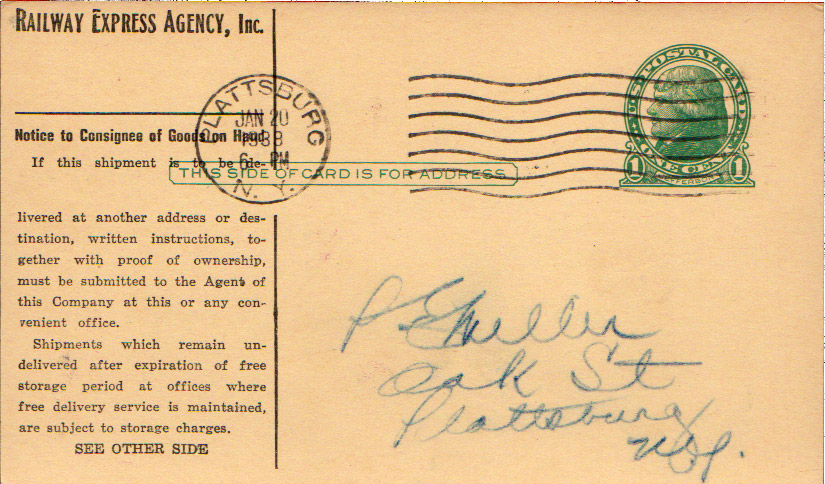 RAILWAY EXPRESS AGENCY, INC.
Notice to Consignee of Goods on Hand
If this shipment is to be de-
livered at another address or des-
tination, written instructions, to-
gether with proof of ownership,
must be submitted to the Agent of
this Company at this or any con-
venient office.
Shipments which remain un-
delivered after expiration of free
storage period at offices where
free delivery service is maintained,
are subject to storage charges.
SEE OTHER SIDE
PLATTSBURG
JAN 20
1938
6 - PM
N. Y.
THIS SIDE OF CARD IS FOR ADDRESS
U·S·POSTAL CARD
1 ONE CENT 1
JEFFERSON
P E Miller
Oak St
Plattsburg
N.Y.